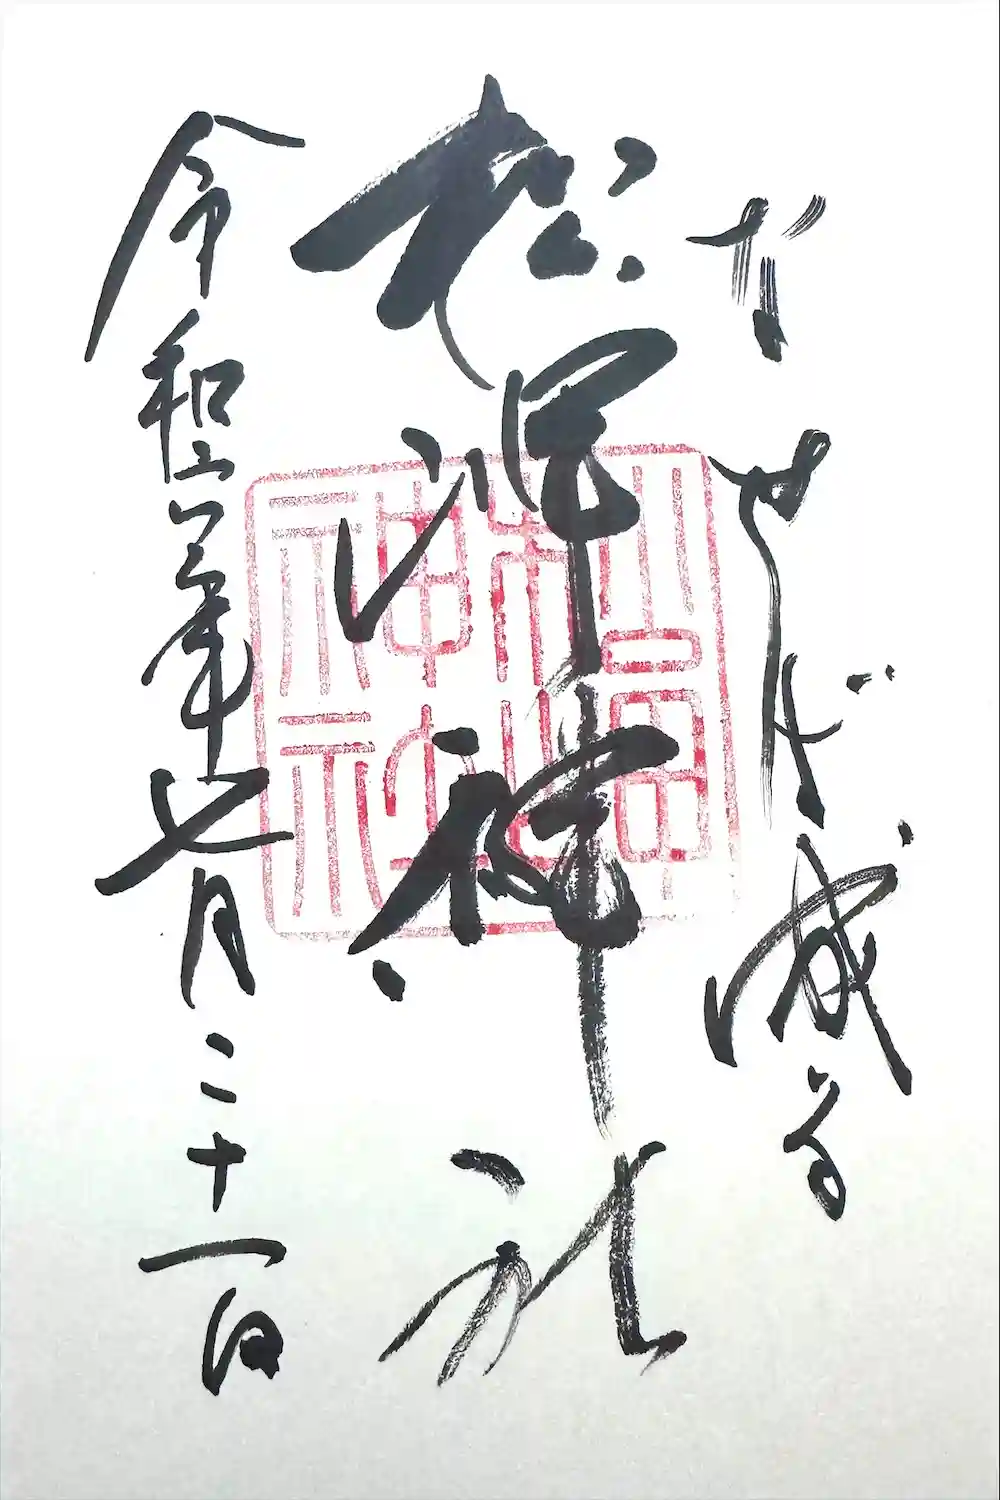 なせば成る
松岬神社
令和六年七月二十一日
松岬神社